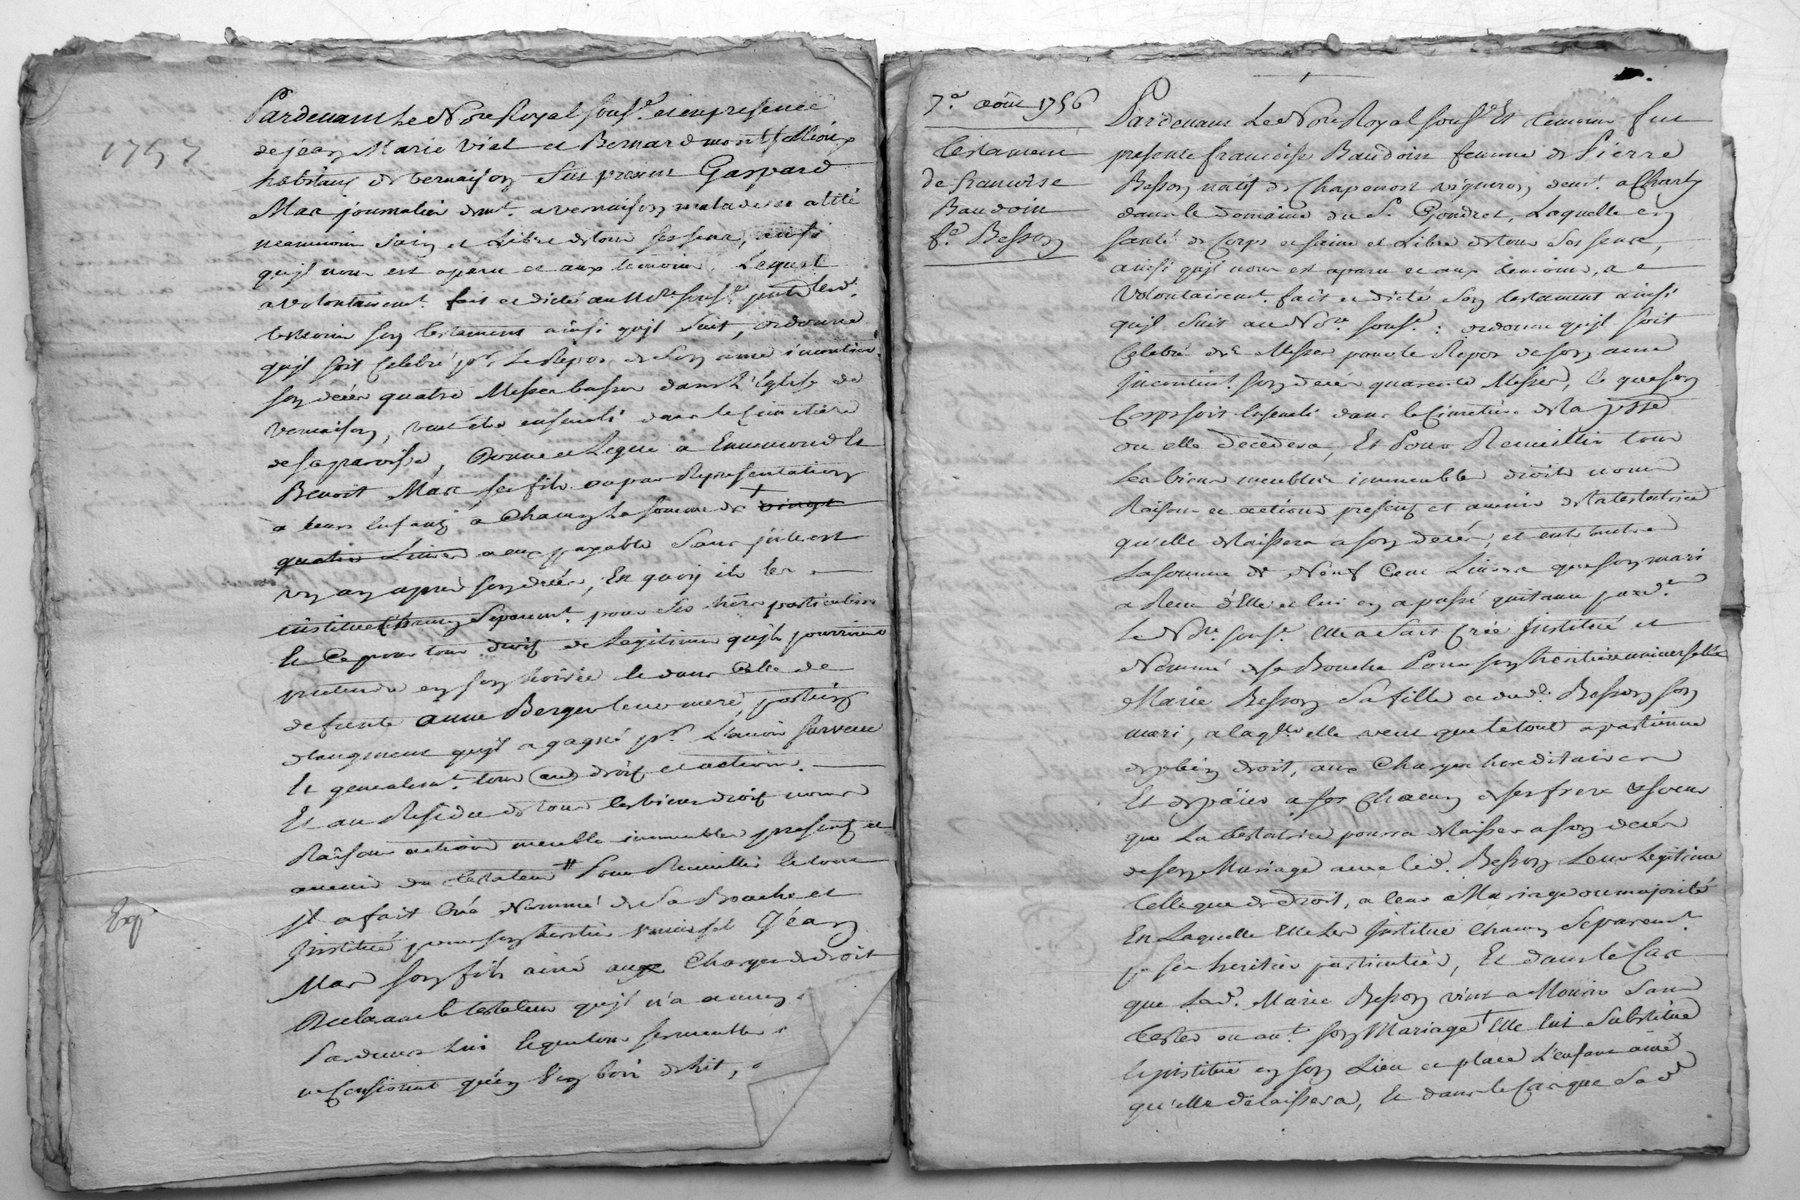 1757
Pardevant Le No.re Royal sous.é et en presence
de jean Marie Vial et Bernard
habitans de vernaison fut present Gaspard
Mas journalier dem.t a vernaison malade au lit
neanmoin sain et Libre de tous ses sens, ainsi
qu'jl nous est aparu et aux temoins, Lequel
a volontairem.t fait et dicté au No.re sous.é
temoin son testament ainsi qu'jl suit, ordonne
qu'jl soit Celebré p.r Le Repos de son ame incontin.
son decés quatre Messes basses dans L'Eglise de
vernaison, veut être enseveli dans le Cimetiere
de sa paroisse, Donne et Legue a Ennemond et
Benoit Mas ses fils ou par Representation
a leurs Enfans a Chacun La somme de vingt
quatre Livres a eux payable sans jnterest
un an apres son decés, En quoy il les
institue Chacun Separem.t pour ses heritiers particuliers
Et Ce pour tous droits de Legitime qu'ils pourroient
pretendre en son hoirie et dans Celle de
defunte anne Berger leur mere, portion
d'augment qu'jl a gagné p.r L'avoir survecu
Et generalem.t tous droits et actions.
Et au Residu de tous les biens droits noms
Raisons actions meubles immeubles presents et
avenir du testateur # Pour Recueillir le tout
jl a fait Créé Nommé de Sa Bouche et
jnstitué pour son heritier universel Jean
Mas son fils ainé aux Charges de droit
Declarant le testateur qu'jl n'a aucun
Pardevers lui
ne Consistent qu'en Son bois de lit,
Exp.
7.e aout 1756
testament
de francoise
Baudoin
f.e Besson
Pardevant Le No.re Royal sous.é Et temoins fut
presente francoise Baudoin femme de Pierre
Besson natif de Chaponost vigneron, dem.t a Charly
dans le domaine du S.r Gondret, Laquelle en
santé de Corps et saine et Libre de tous Ses sens,
ainsi qu'jl nous est aparu et aux temoins, a
Volontairem.t fait et dicté son testament ainsi
qu'jl suit au No.re sous.é : ordonne qu'jl soit
Celebré des Messes pour le Repos de son ame
jncontin.t son decés quarente Messes, et que son
Corps soit Enseveli dans le Cimetiere de la p.sse
ou elle decedera, Et Pour Recueillir tous
Les biens meubles immeubles droits noms
Raisons et actions presents et avenir de la testatrice
qu'elle delaissera a son decés, et entr'autres
La somme de Neuf Cent Livres que son mari
a Recu d'Elle et lui en a passé quittance
le No.re sous.é Elle a fait Créé jnstitué et
Nommé de sa Bouche Pour son heritiere universelle
Marie Besson Sa fille et dud. Besson son
mari, a laq.lle elle veut que le tout apartienne
de plein droit, aux Charges hereditaires
Et de païer a Chacun de ses frere et soeur
que La testatrice pourra delaisser a son decés
de son Mariage avec led. Besson Leur Legitime
telle que de droit, a leur Mariage ou majorité
En Laquelle Elle Les jnstitue Chacun Separem.t
p.r ses heritiers particuliers, Et dans le Cas
que Lad. Marie Besson vint a Mourir Sans
tester ou av.t son Mariage † Elle lui substitue
et jnstitue en son Lieu et place L'enfant ainé
qu'elle delaissera, Et dans le Cas que Sad.